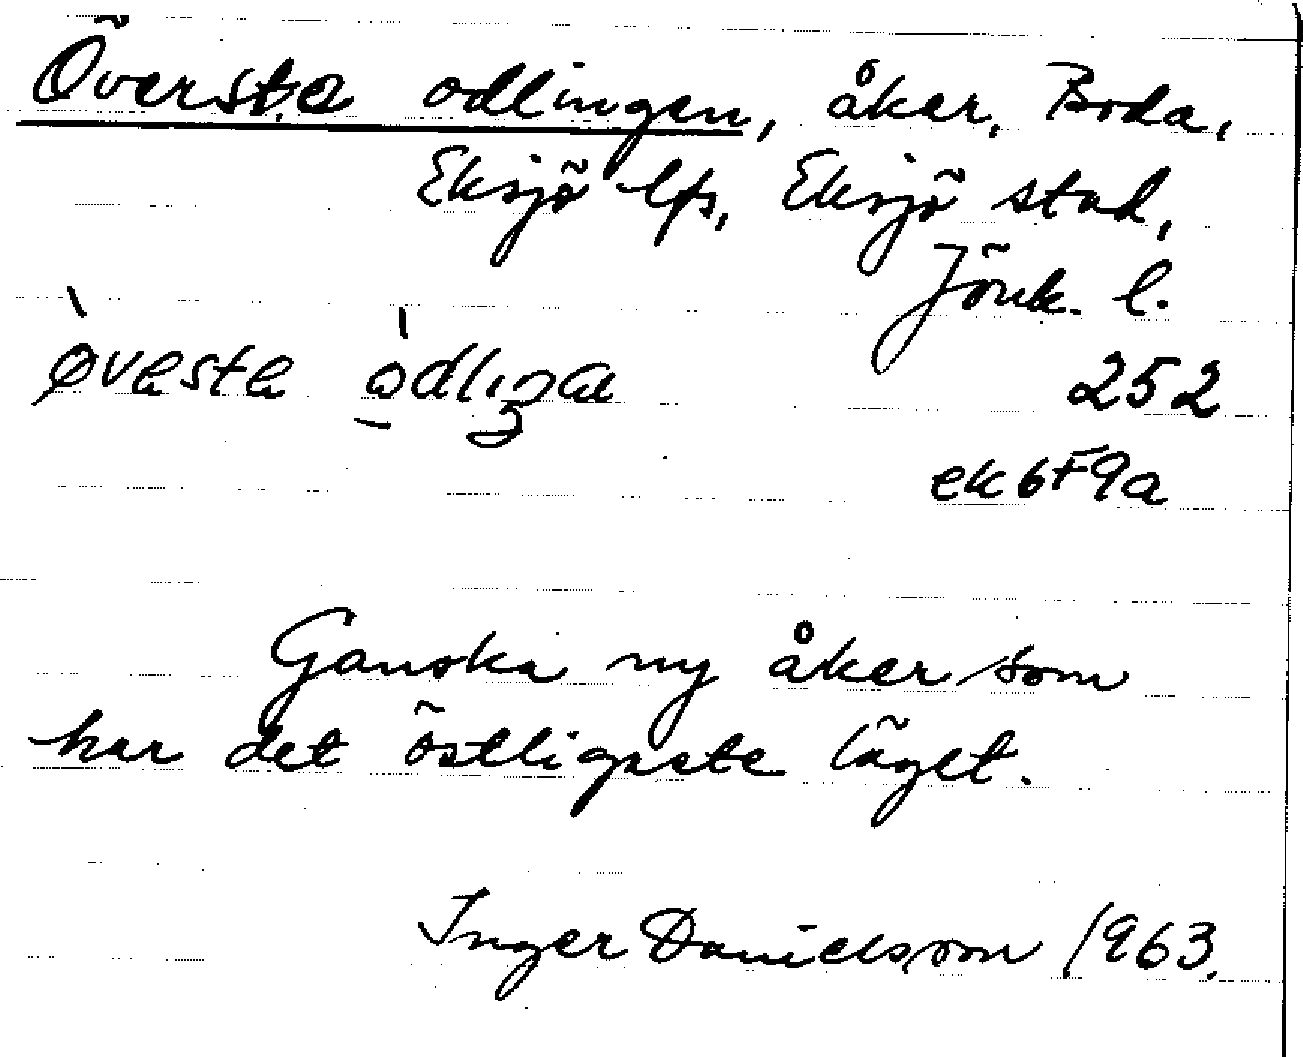 Översta odlingen, åker, Boda,
Eksjö lfs, Eksjö stad,
Jönk. l.
ø̀vesta òdliŋa 252
ek 6F9a
Ganska ny åker som
har det östligaste läget.
Inger Danielsson 1963.